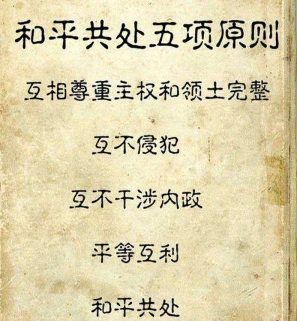 和平共处五项原则
互相尊重主权和领土完整
互不侵犯
互不干涉内政
平等互利
和平共处